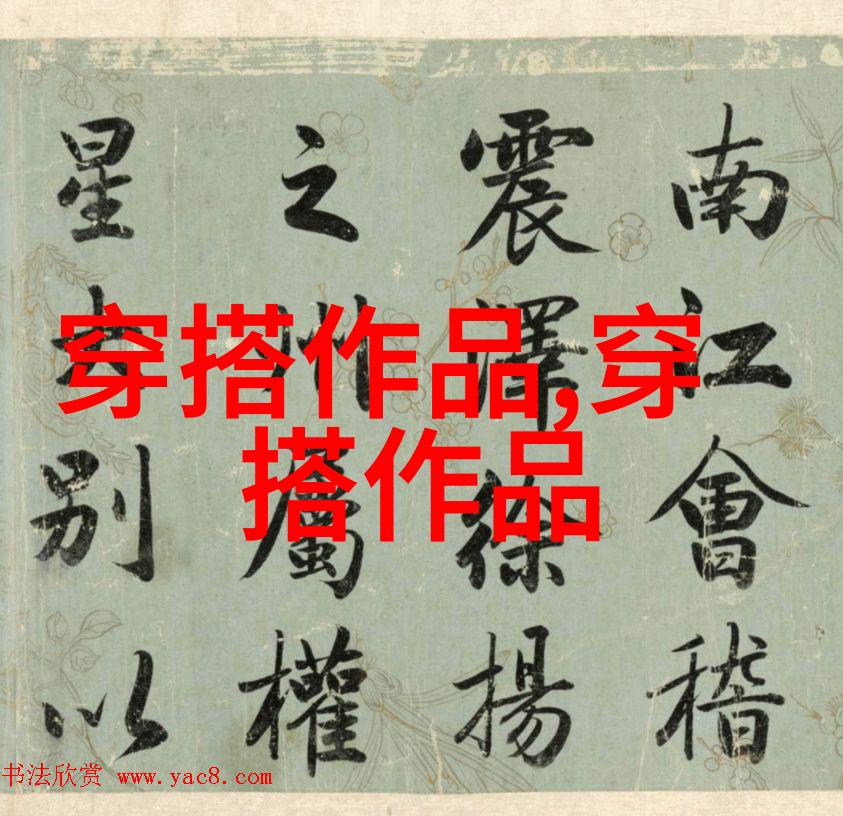 南江會稽
震澤徐揚
之州屬權
星別以
穿搭作品,穿
搭作品
书法欣赏 www.yac8.com